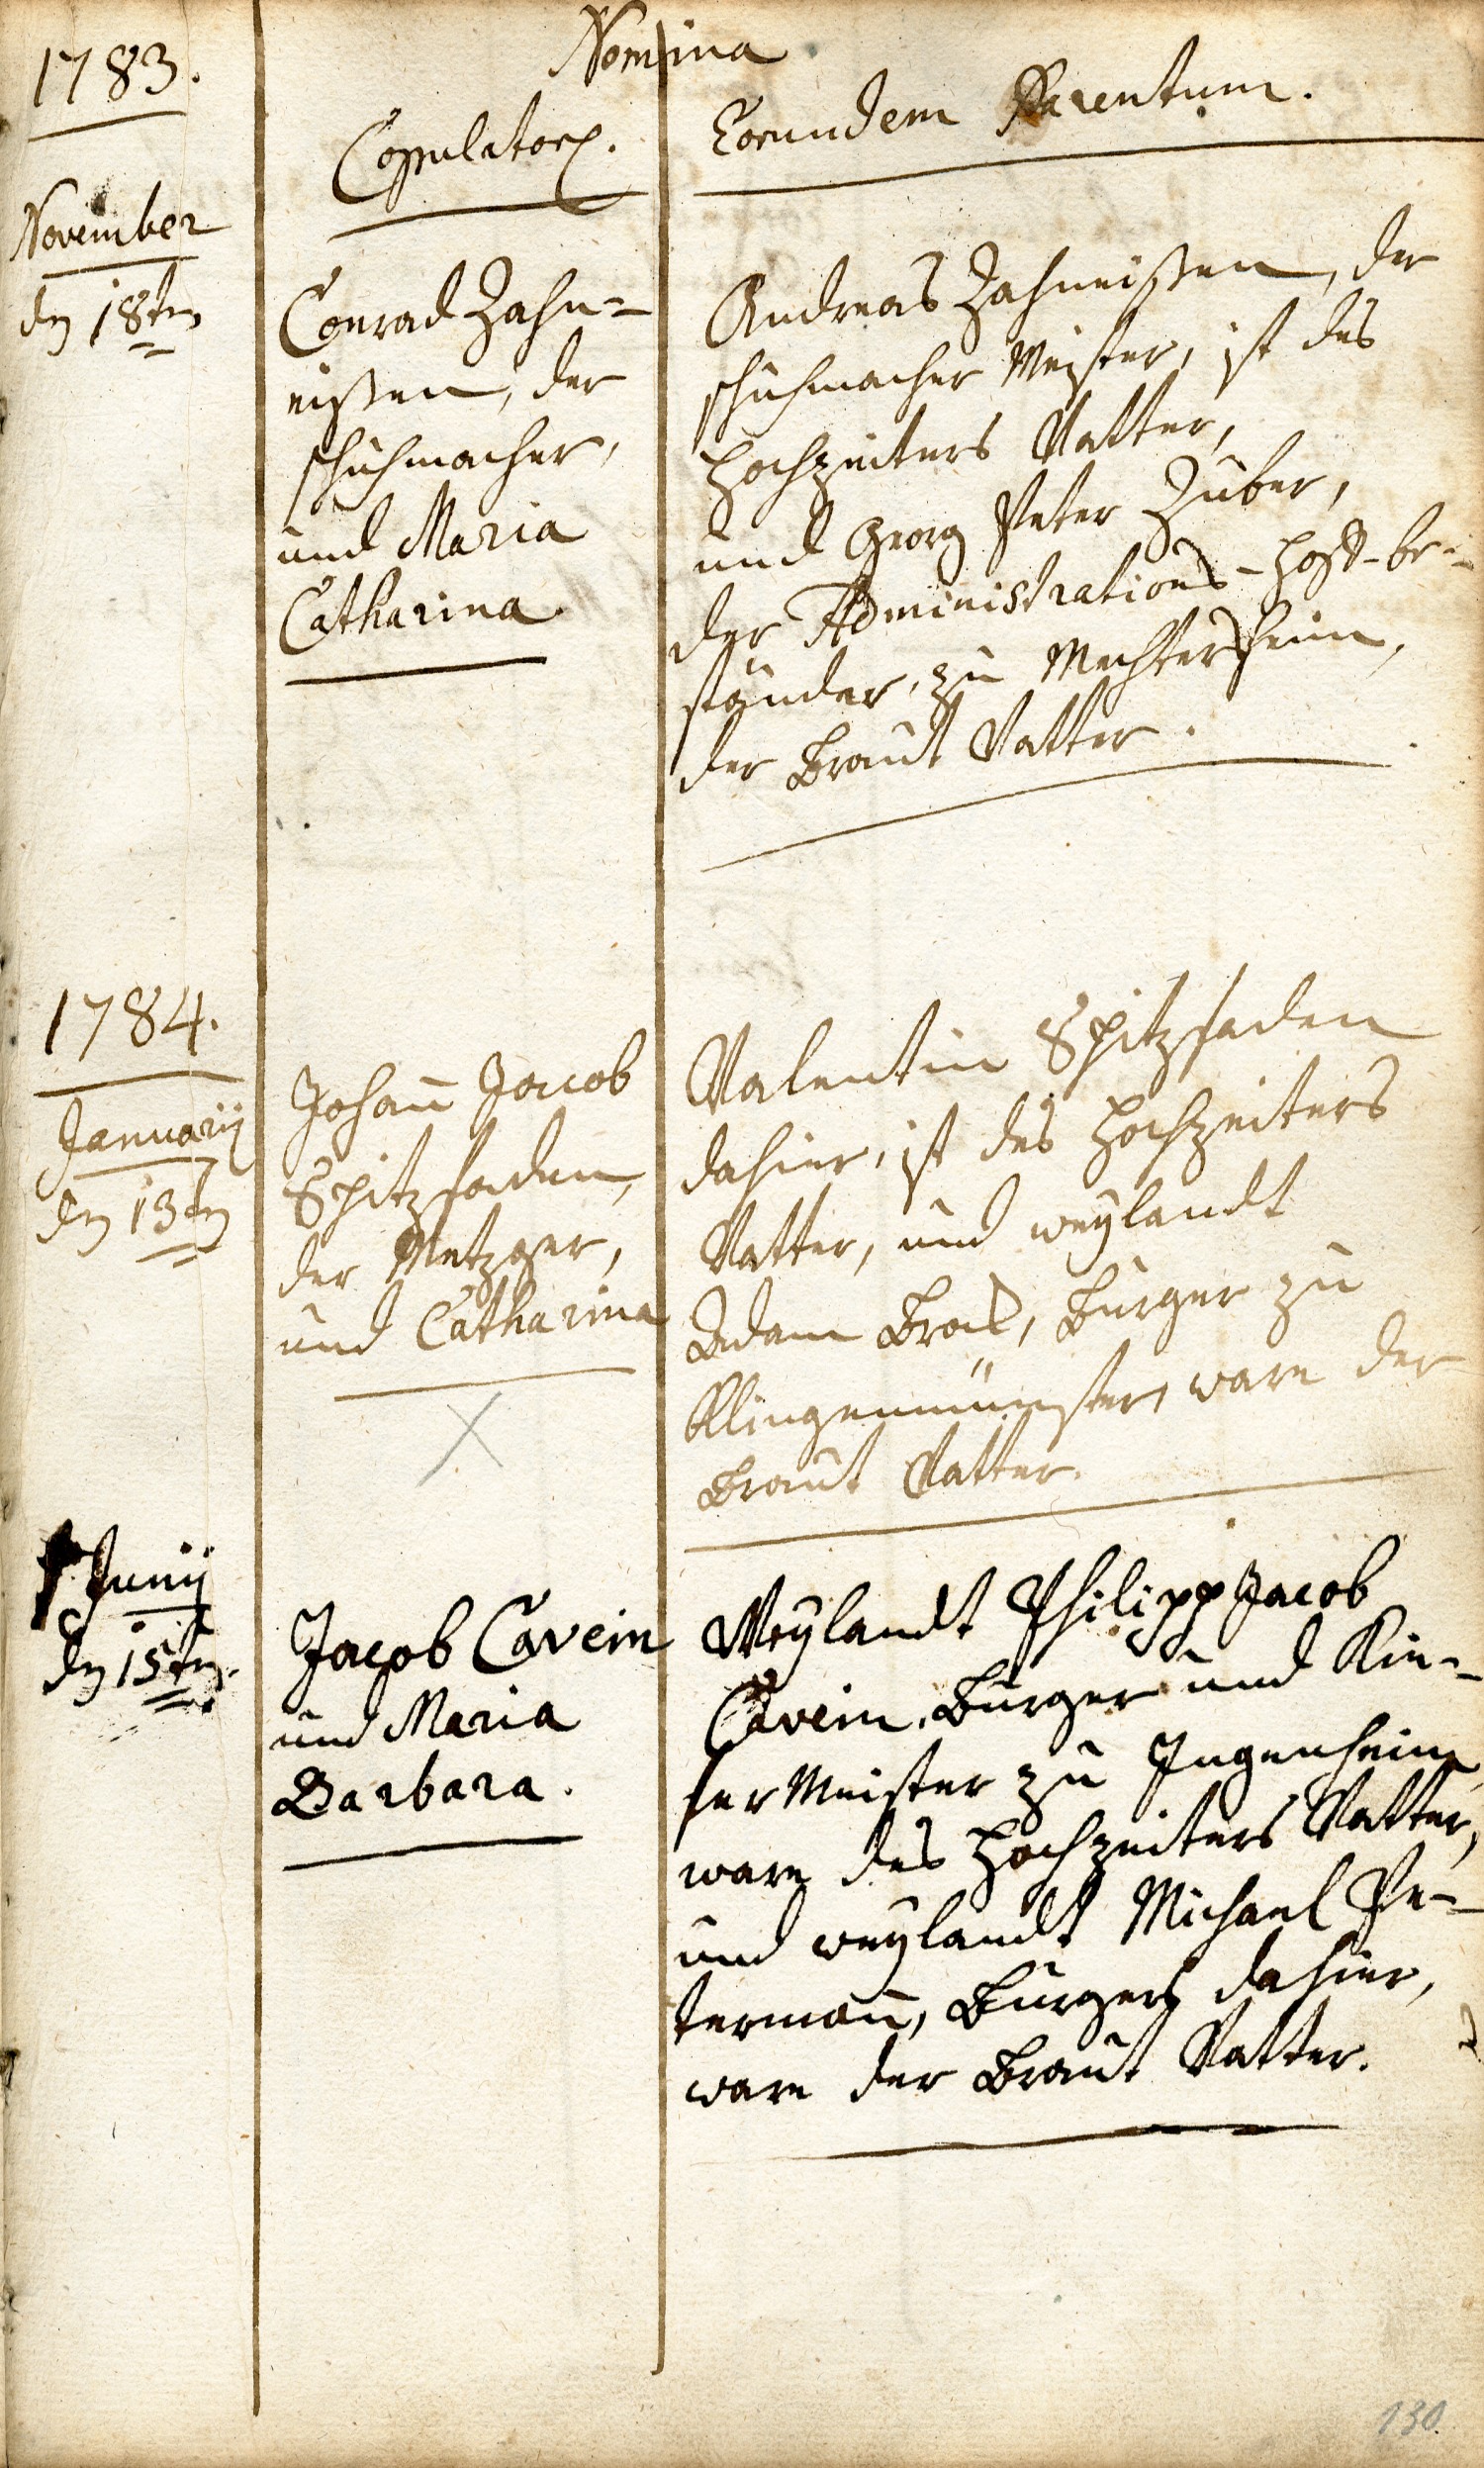 1783.
Nomina
Copulator.
Eorundem Parentum.
November
den 18ten
Conrad Zahn=
eißen, der
schuhmacher,
und Maria
Catharina
Andreas Zahneißen, der
schuhmacher Meister, ist des
Hochzeiters Vatter,
und Georg Peter Zuber,
der Administrations-Hoff-be-
ständer, zu Mechtersheim,
der Braut Vatter.
1784.
Januarij
den 13ten
Johañ Jacob
Spitzfaden,
der Metzger,
und Catharina
Valentin Spitzfaden
dahier, ist des Hochzeiters
Vatter, und weylandt
Adam Bras, Burger zu
Klingenmünster, ware der
Braut Vatter.
Junij
den 15ten.
Jacob Cavein
und Maria
Barbara.
Weylandt Philipp Jacob
Cavein, Burger und Kie-
fer Meister zu Ingenheim,
ware des Hochzeiters Vatter,
und weylandt Michael Pe-
termañ, Burgers dahier,
ware der Braut Vatter.
130.